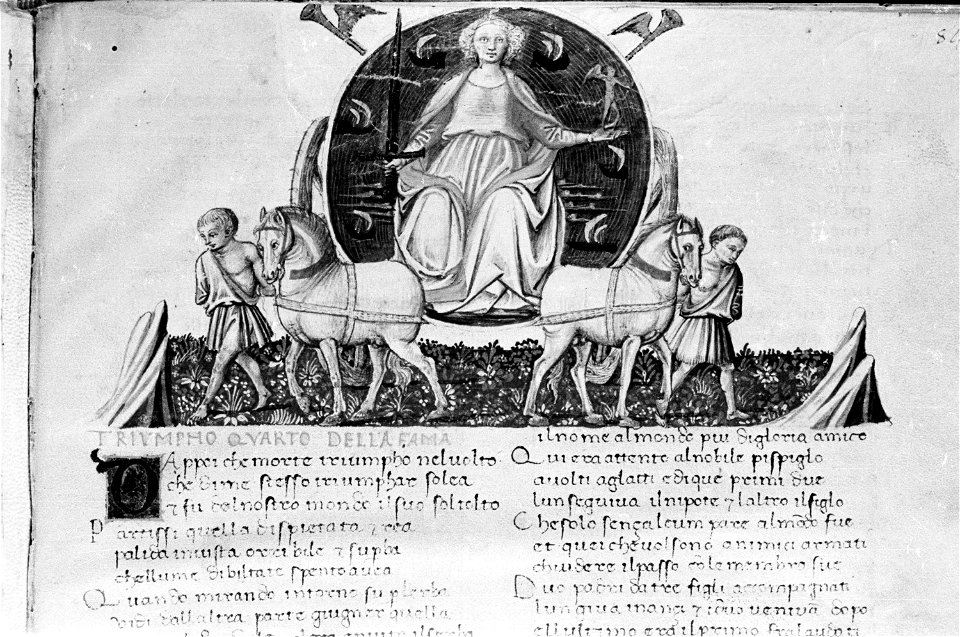 TRIVMPHO QVARTO DELLA FAMA
DAppoi che morte triumpho neluolto
che dime stesso triumphar solea
& fu delnostro mondo ilsuo soltolto
Partissi quella dispietata & rea
palida inuista orribile & supba
chellume dibiltate spento auea
Quando mirando intorno su plerba
vidi dallaltra parte giugner quella
ilnome almondo piu digloria amico
Qui era attente alnobile pispiglo
auolti aglatti ediquei primi due
lun seguiua ilnipote & laltro ilfiglo
Che solo sença alcum pare almōdo fue
et quei cheuolsono animici armati
chiudere ilpasso cole membra sue
Duo padri da tre figli accompagnati
lun giua inançi & iduo veniuā dopo
ellultimo era ilprimo fralaudati